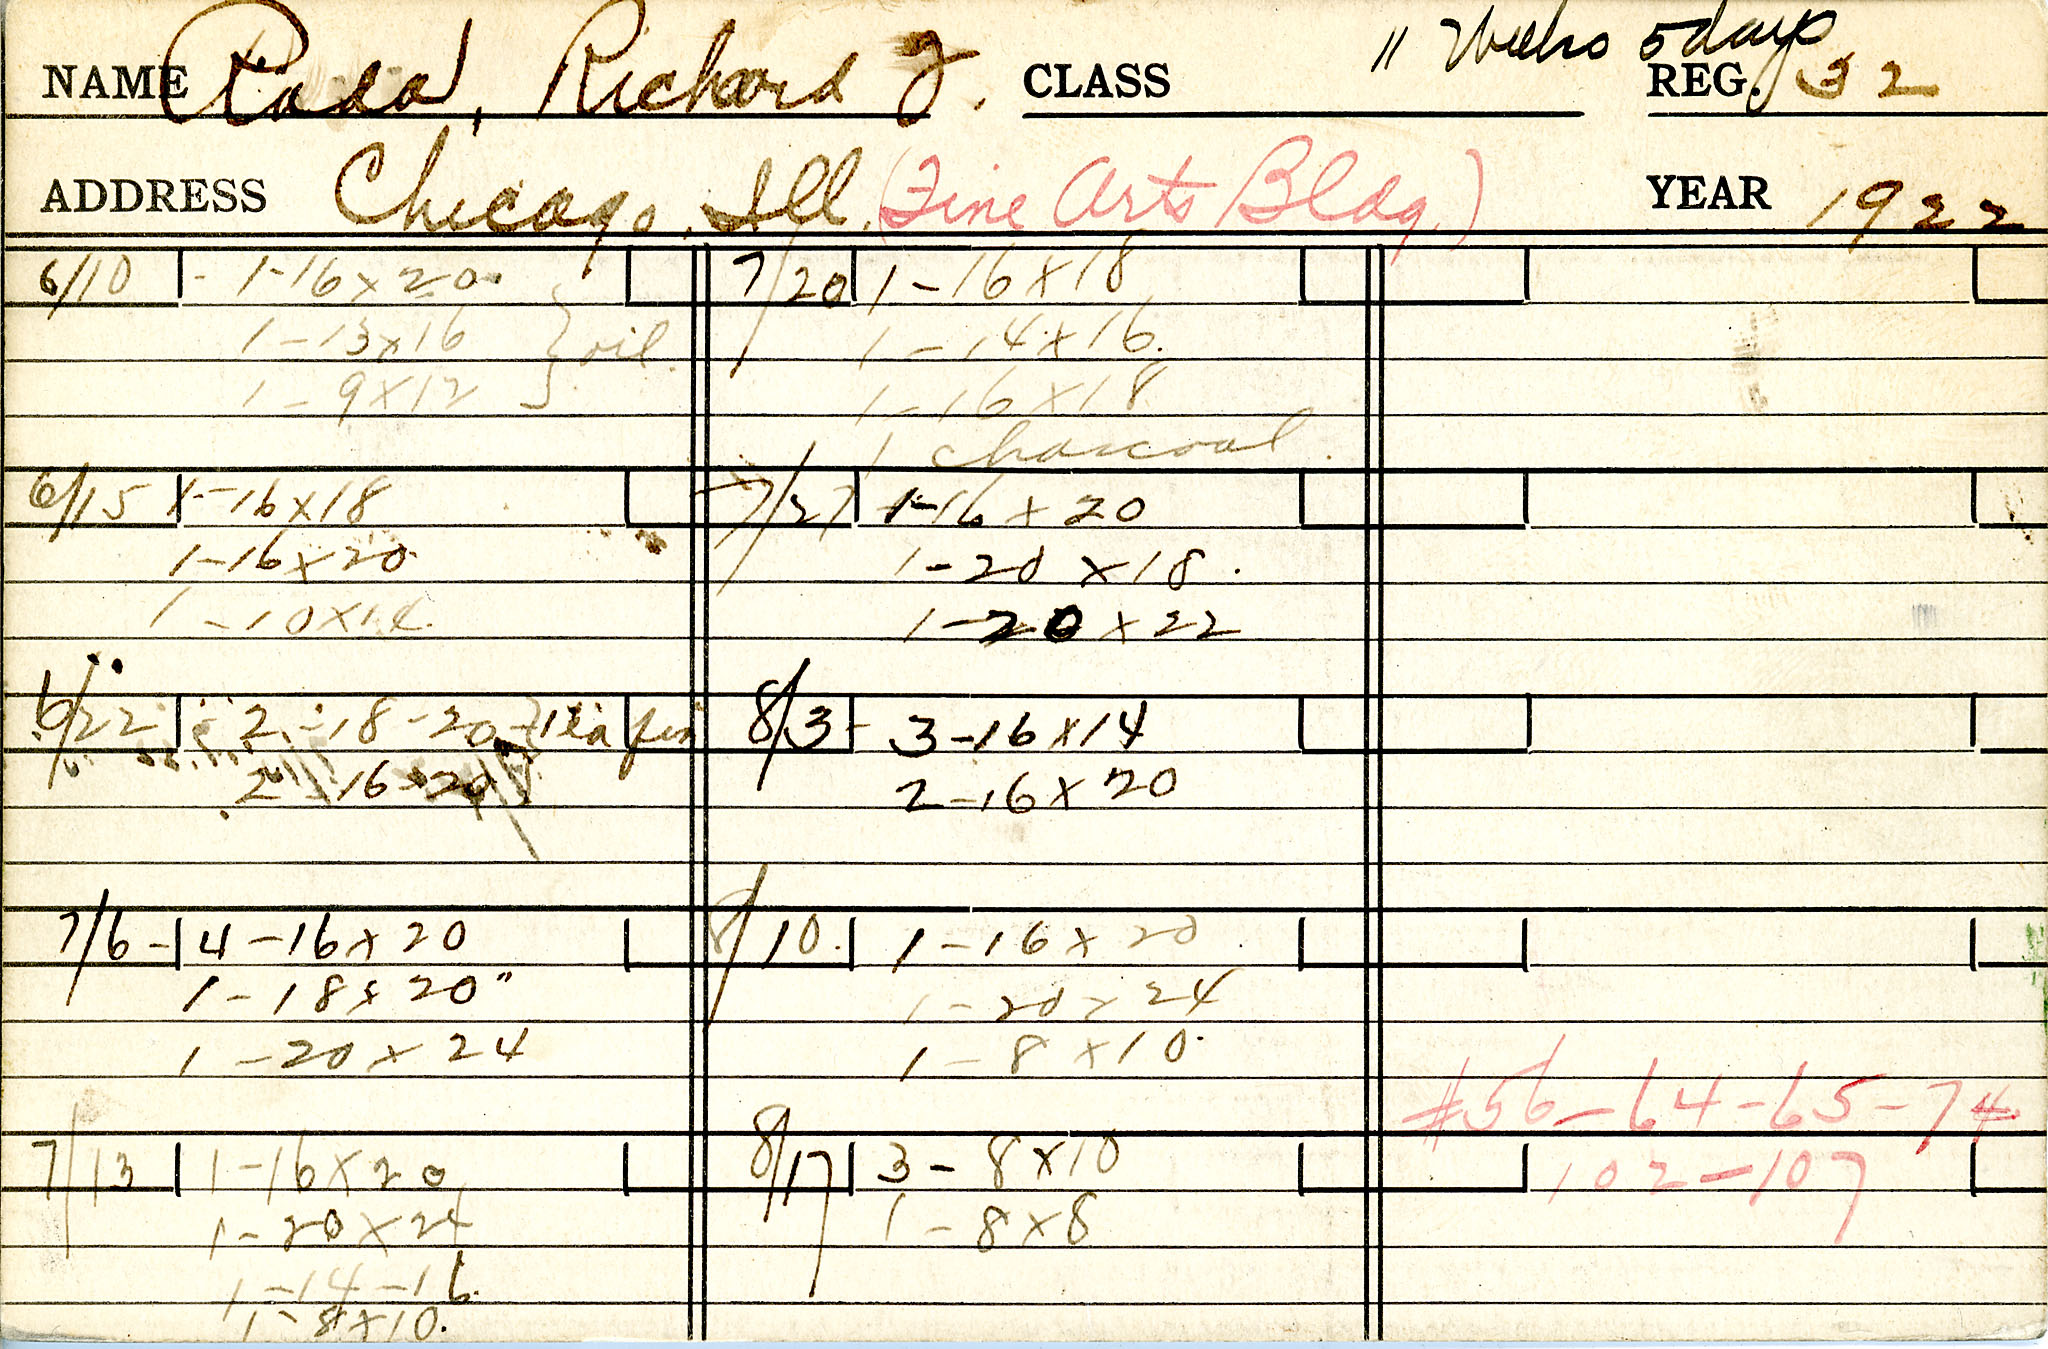 11 Weeks 5 days
NAME Rada, Richard J. CLASS REG. 32
ADDRESS Chicago, Ill. (Fine Arts Bldg.) YEAR 1922
6/10 - 1-16 x 20
1-13x16 } oil.
1-9x12
6/15 1-16x18
1-16x20
1-10x14
6/22 2-18-20
2-16x20
7/6-4-16x20
1-18x20"
1-20x24
7/13 1-16x20
1-20x24
1-14-16
1-8x10.
7/20 1-16x18
1-14x16.
1-16x18
1 charcoal.
7/27 1-16x20
1-20x18.
1-20x22
8/3- 3-16x14
2-16x20
8/10. 1-16x20
1-20x24
1-8x10.
8/17 3-8x10
1-8x8
#56-64-65-74
102-107